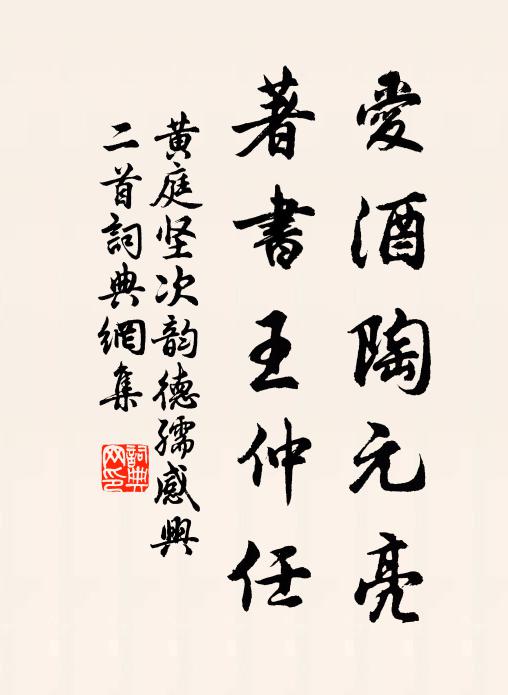 愛酒陶元亮
著書王仲任
黄庭坚次韵德孺感興
二首詞典網集
詞典网印